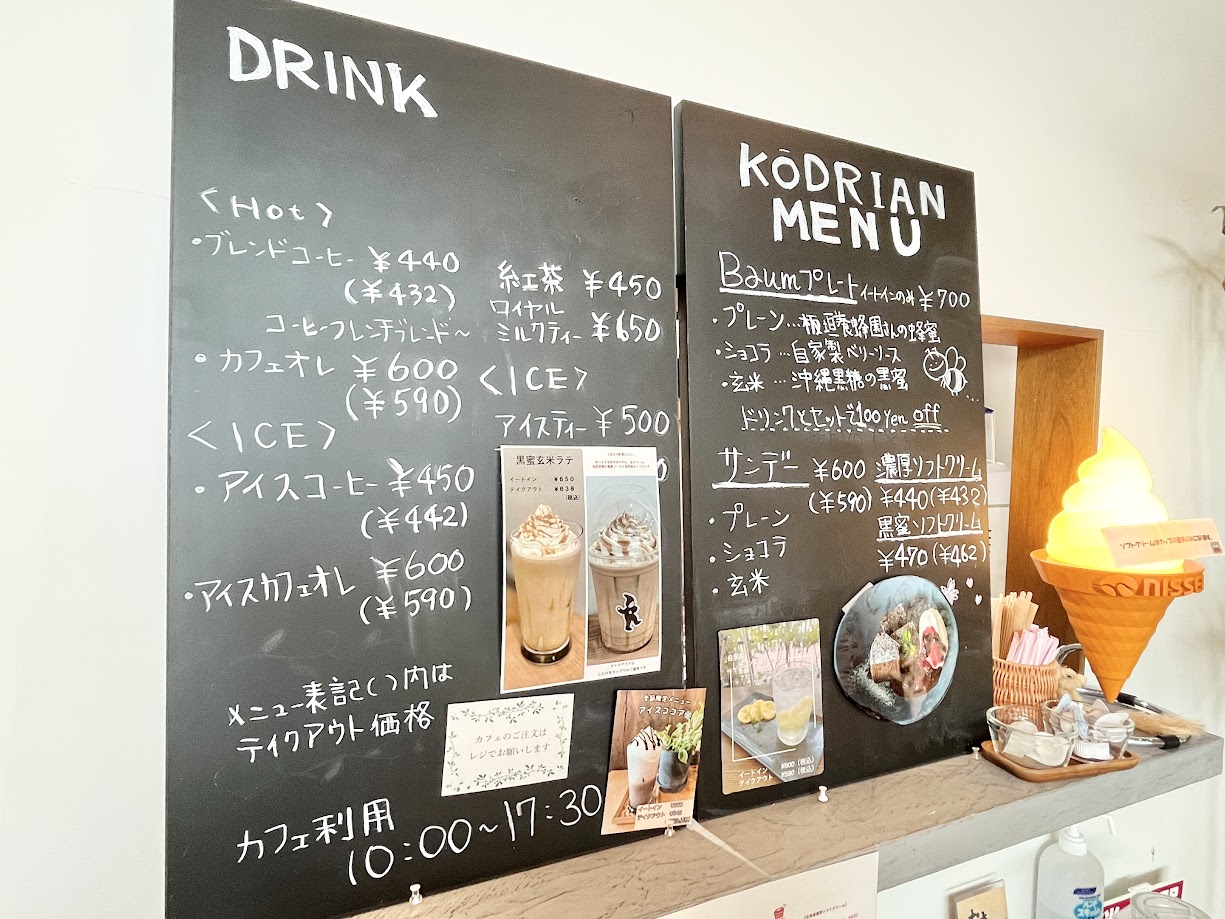 DRINK
<Hot>
・ブレンドコーヒー ¥440
(¥432)
コーヒーフレンチブレンド〜
・カフェオレ ¥600
(¥590)
<ICE>
・アイスコーヒー ¥450
(¥442)
・アイスカフェオレ ¥600
(¥590)
メニュー表記()内は
テイクアウト価格
カフェ利用
10:00〜17:30
紅茶 ¥450
ロイヤル
ミルクティー ¥650
<ICE>
アイスティー ¥500
黒蜜玄米ラテ
イートイン ¥650
テイクアウト ¥638
(税込)
カフェのご注文は
レジでお願いします
季節限定メニュー
アイスココア
イートイン
テイクアウト
KŌDRIAN
MENU
Baumプレート イートインのみ ¥700
・プレーン…板垣養蜂園さんの蜂蜜
・ショコラ…自家製ベリーソース
・玄米…沖縄黒糖の黒蜜
ドリンクとセットで100yen off
サンデー ¥600
(¥590)
・プレーン
・ショコラ
・玄米
濃厚ソフトクリーム
¥440(¥432)
黒蜜ソフトクリーム
¥470(¥462)
イートイン ¥600 (税込)
テイクアウト ¥590 (税込)
NISSEI